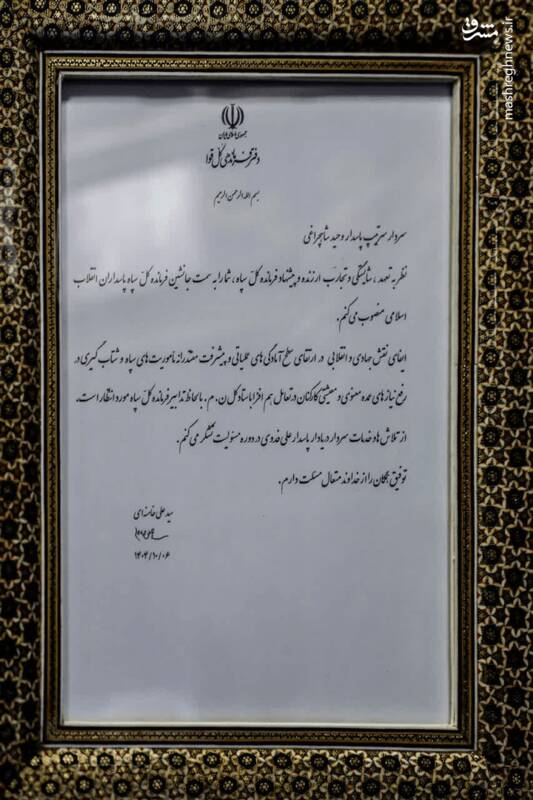 مشرق
mashreghnews.ir
جمهوری اسلامی ایران
دفتر فرماندهی کل قوا
بسم الله الرحمن الرحیم
سردار سرتیپ پاسدار وحید شاهچراغی
نظر به تعهد، شایستگی و تجارب ارزنده و پیشنهاد فرمانده کل سپاه، شما را به سمت جانشین فرمانده کل سپاه پاسداران انقلاب
اسلامی منصوب می‌کنم.
ایفای نقش جهادی و انقلابی در ارتقای سطح آمادگی‌های عملیاتی و پیشرفت مقتدرانه مأموریت‌های سپاه و شتاب گیری در
رفع نیازهای عمده معنوی و معیشتی کارکنان در تعامل هم افزا با ستاد کل ن.م. با لحاظ تدابیر فرمانده کل سپاه مورد انتظار است.
از تلاش‌ها و خدمات سردار دریادار پاسدار علی فدوی در دوره مسئولیت تشکر می‌کنم.
توفیق همگان را از خداوند متعال مسئلت دارم.
سید علی خامنه‌ای
۱۴۰۴/۱۰/۰۶